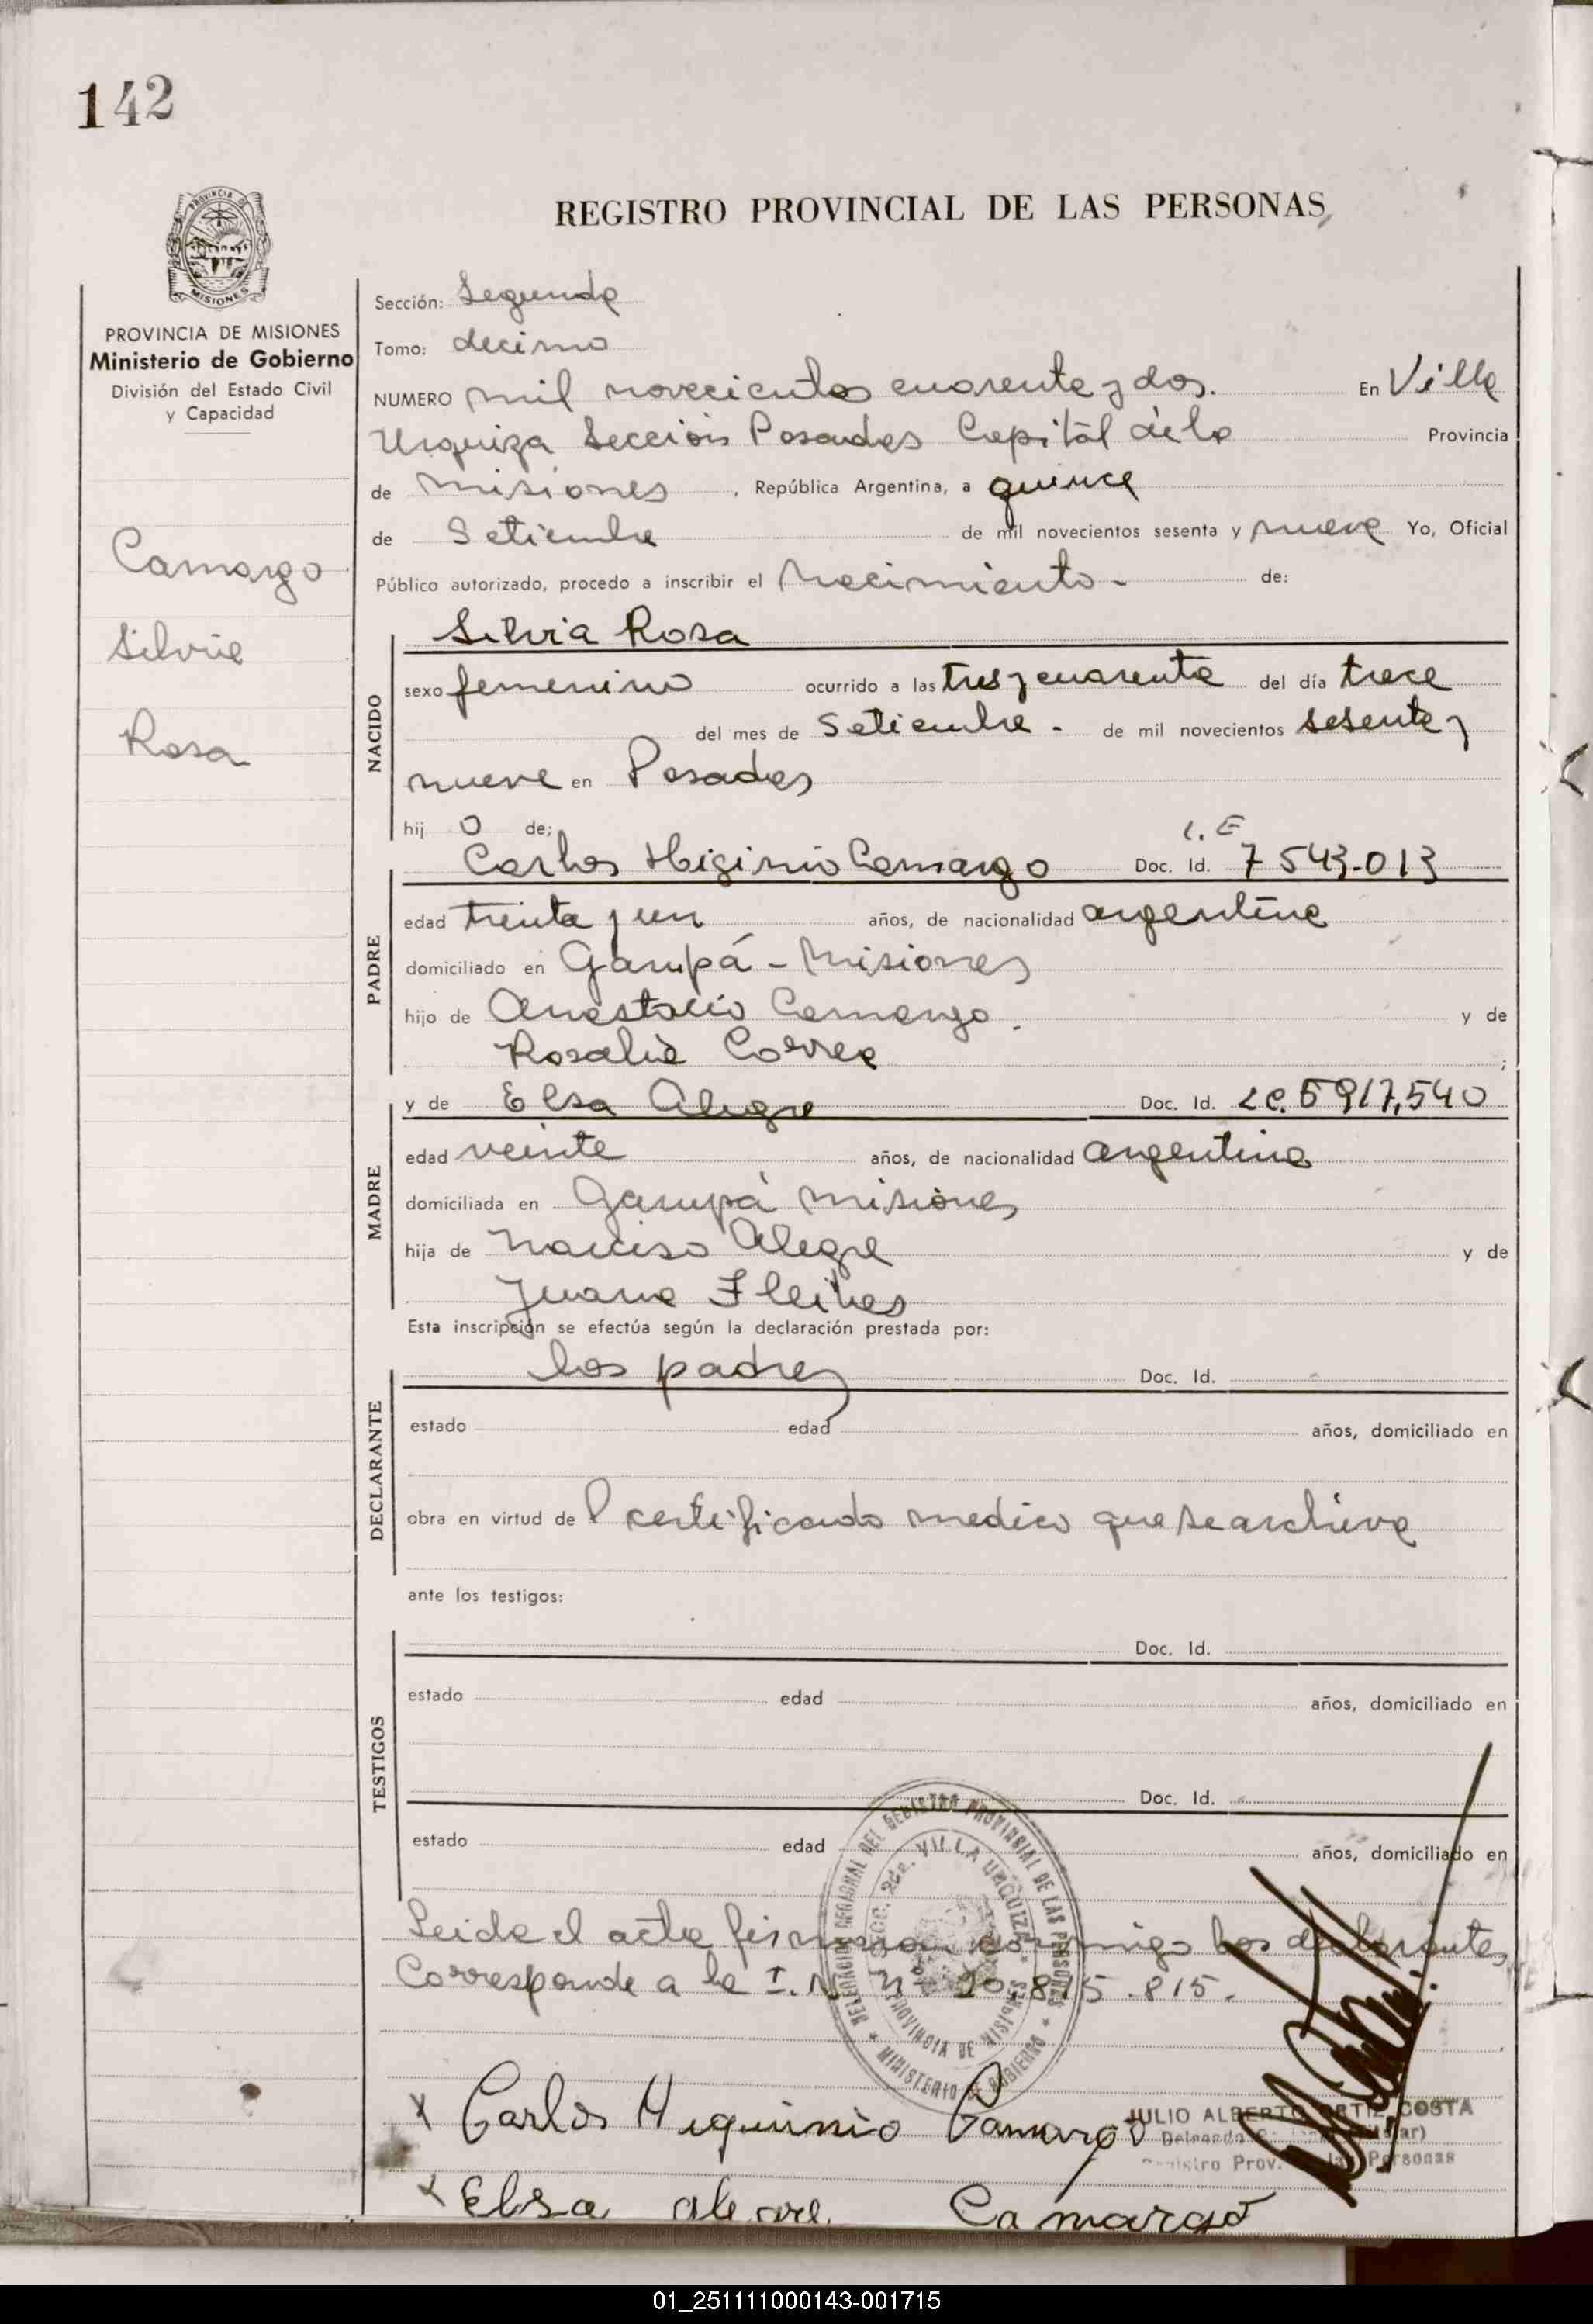 142
REGISTRO PROVINCIAL DE LAS PERSONAS
PROVINCIA DE MISIONES
PROVINCIA DE MISIONES
Ministerio de Gobierno
División del Estado Civil
y Capacidad
Camargo
Silvia
Rosa
Sección: Segunda
Tomo: decimo
NUMERO mil novecientos cuarenta y dos. En Villa
Urquiza Sección Posadas Capital de la Provincia
de Misiones, República Argentina, a quince
de Setiembre de mil novecientos sesenta y nueve Yo, Oficial
Público autorizado, procedo a inscribir el Nacimiento - de:
NACIDO
Silvia Rosa
sexo femenino ocurrido a las tres y cuarenta del día trece
del mes de Setiembre - de mil novecientos sesenta y
nueve en Posadas
hij o de;
PADRE
Carlos Higinio Camargo Doc. Id. L.E 7543.013
edad treinta y un años, de nacionalidad argentina
domiciliado en Garupá - Misiones
hijo de Anastacio Camargo. y de
Rosalia Correa ;
MADRE
y de Elsa Alegre Doc. Id. LC. 5917,540
edad veinte años, de nacionalidad argentina
domiciliada en Garupá Misiones
hija de Narciso Alegre y de
Juana Fleitas
Esta inscripción se efectúa según la declaración prestada por:
DECLARANTE
los padres Doc. Id.
estado edad años, domiciliado en
obra en virtud de certificado medico que se archiva
ante los testigos:
TESTIGOS
Doc. Id.
estado edad años, domiciliado en
Doc. Id.
estado edad años, domiciliado en
DELEGACION REGIONAL DEL REGISTRO PROVINCIAL DE LAS PERSONAS
SECC. 2da. VILLA URQUIZA
PROVINCIA DE MISIONES
MINISTERIO DE GOBIERNO
Leida el acta firmaron conmigo los declarantes
Corresponde a la I.N. Nº 20.815.815.
x Carlos Higuinio Camargo
JULIO ALBERTO ORTIZ COSTA
Registro Prov. de las Personas
x Elsa alegre Camargo
01_251111000143-001715